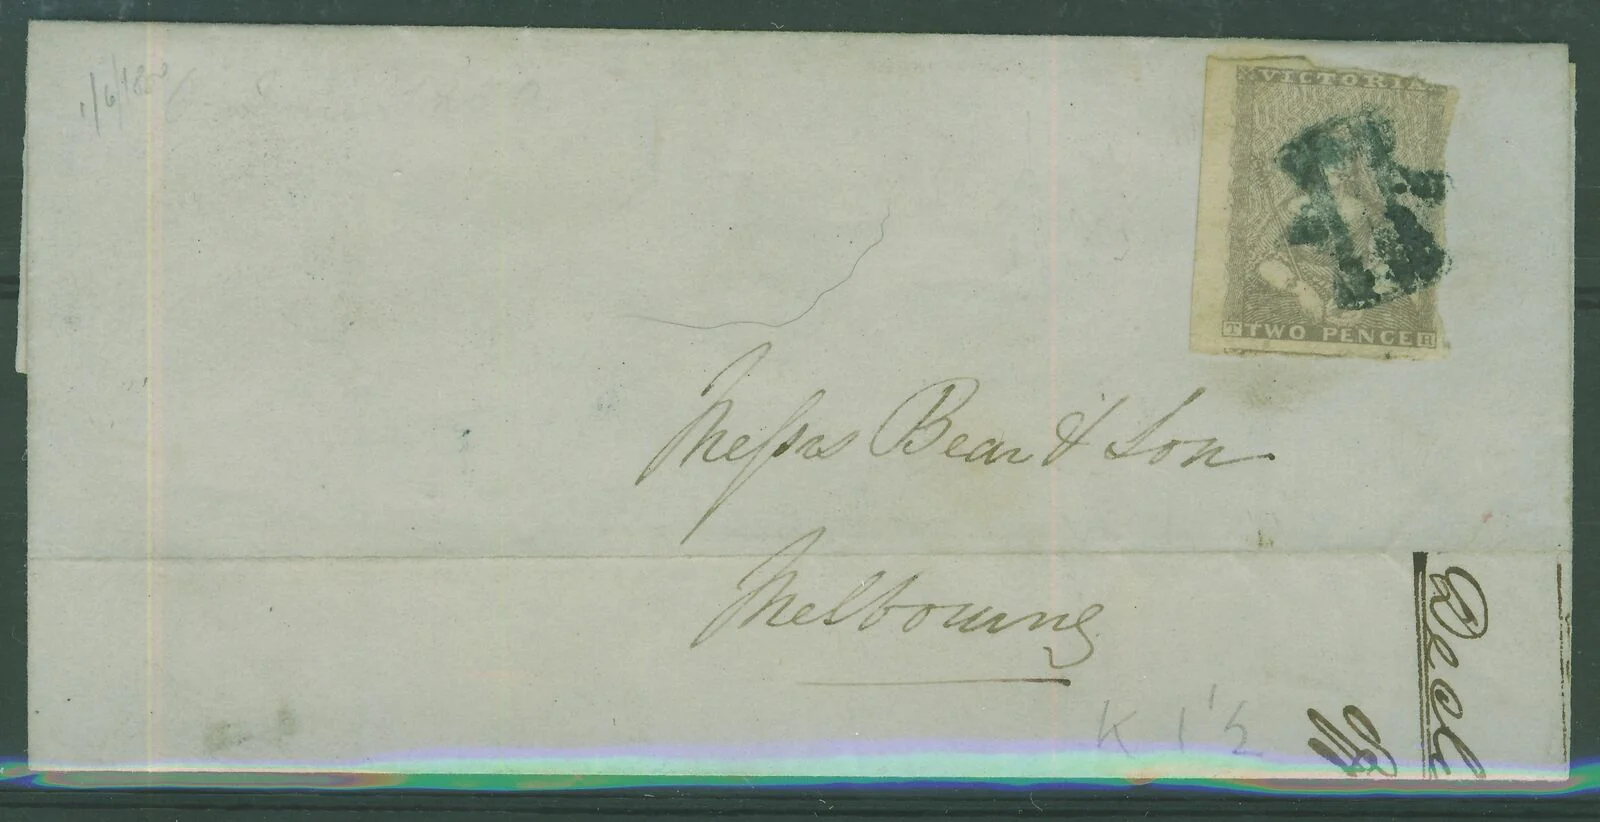 1/6/1850
VICTORIA
T TWO PENCE R
Messrs Bear & Son
Melbourne
K 1'2